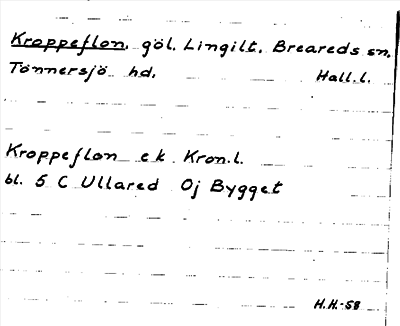 Kroppeflon. göl. Lingilt. Breareds sn.
Tönnersjö hd. Hall.l.
Kroppeflon ek Kron.l.
bl. 5 C Ullared Oj Bygget
H.H.-58